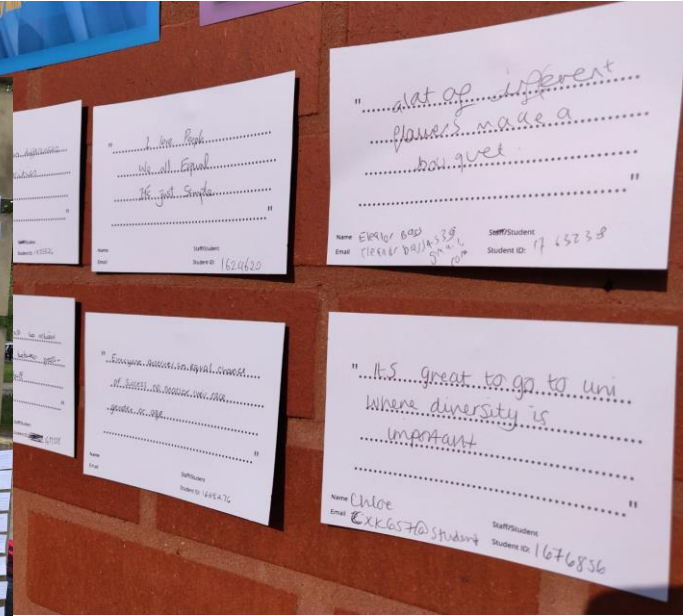 "
I love People
We all Equal
It's Just Simple
"
Name
Email
Staff/Student
Student ID: 1624620
" a lot of different
flowers made a
bouquet.
"
Name Eleanor Bass
Email
Staff/Student
Student ID: 17 63238
between
"
Staff/Student
Student ID:
" Everyone deserves an equal chance
of success no matter their race
gender or age
"
Name
Email
Staff/Student
Student ID:
" It's great to go to uni
where diversity is
important
"
Name Chloe
Email CXK657@student
Staff/Student
Student ID: 1676856